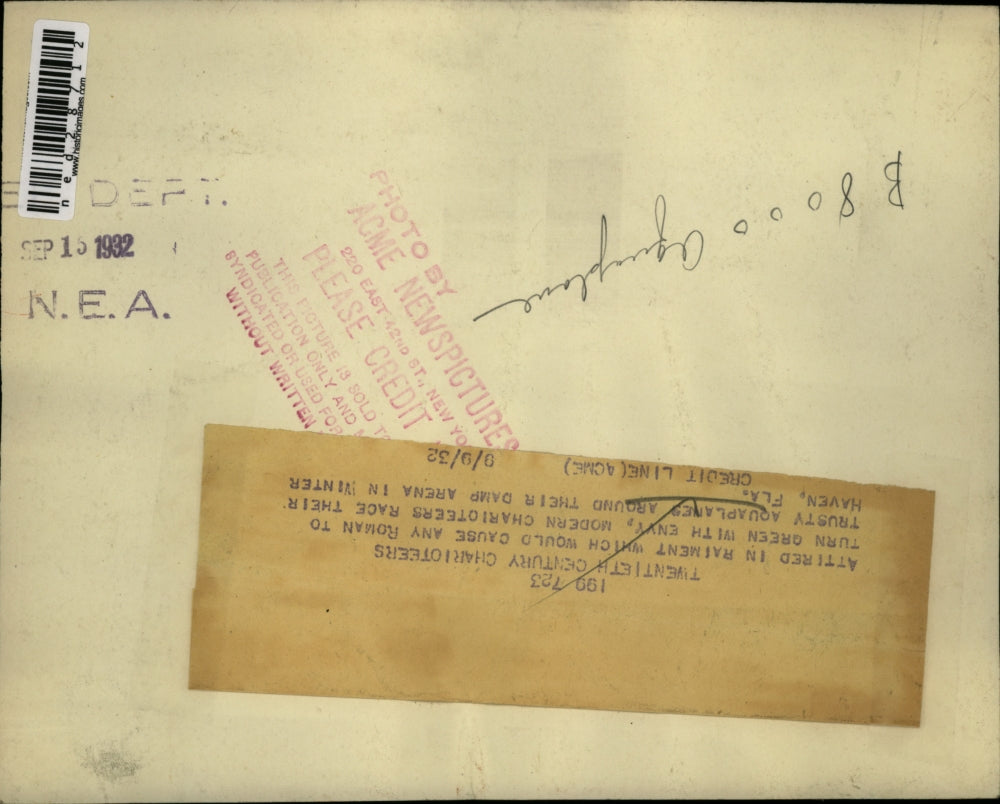 ned28712
www.historicimages.com
DEPT.
SEP 15 1932
N.E.A.
PHOTO BY
ACME NEWSPICTURES
220 EAST 42ND ST., NEW YO
PLEASE CREDIT
THIS PICTURE IS SOLD
PUBLICATION ONLY AND
SYNDICATED OR USED FOR
WITHOUT WRITTEN
B 8000
Aquaplane
199 723
TWENTIETH CENTURY CHARIOTEERS
ATTIRED IN RAIMENT WHICH WOULD CAUSE ANY ROMAN TO
TURN GREEN WITH ENVY, MODERN CHARIOTEERS RACE THEIR
TRUSTY AQUAPLANES AROUND THEIR DAMP ARENA IN WINTER
HAVEN, FLA.
CREDIT LINE(ACME) 9/9/32